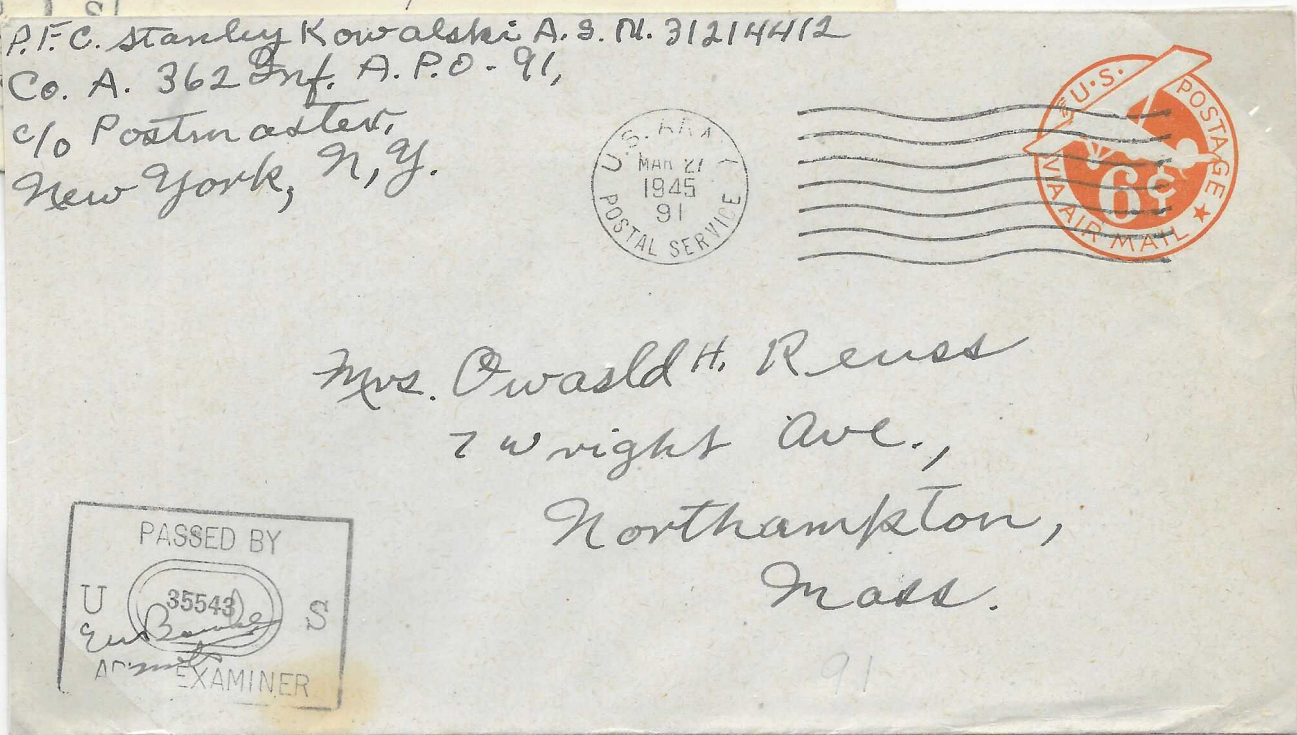 P.F.C. Stanley Kowalski A.S.N. 31214412
Co. A. 362 Inf. A.P.O - 91,
c/o Postmaster,
New York, N,Y.
U.S. ARMY
MAR 27
1945
91
POSTAL SERVICE
U.S. POSTAGE
6¢
VIA AIR MAIL
Mrs. Owasld H. Reuss
7 Wright Ave.,
Northampton,
Mass.
PASSED BY
U 35543 S
ARMY EXAMINER
91